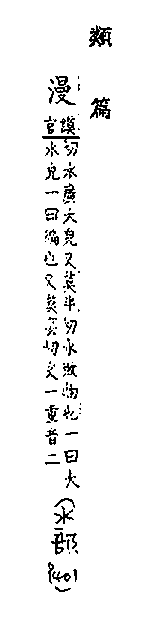 類篇
漫
謨官切水廣大皃又莫半切水敗物也一曰大
水皃一曰徧也又莫官切文一重音二
(水部
P401)